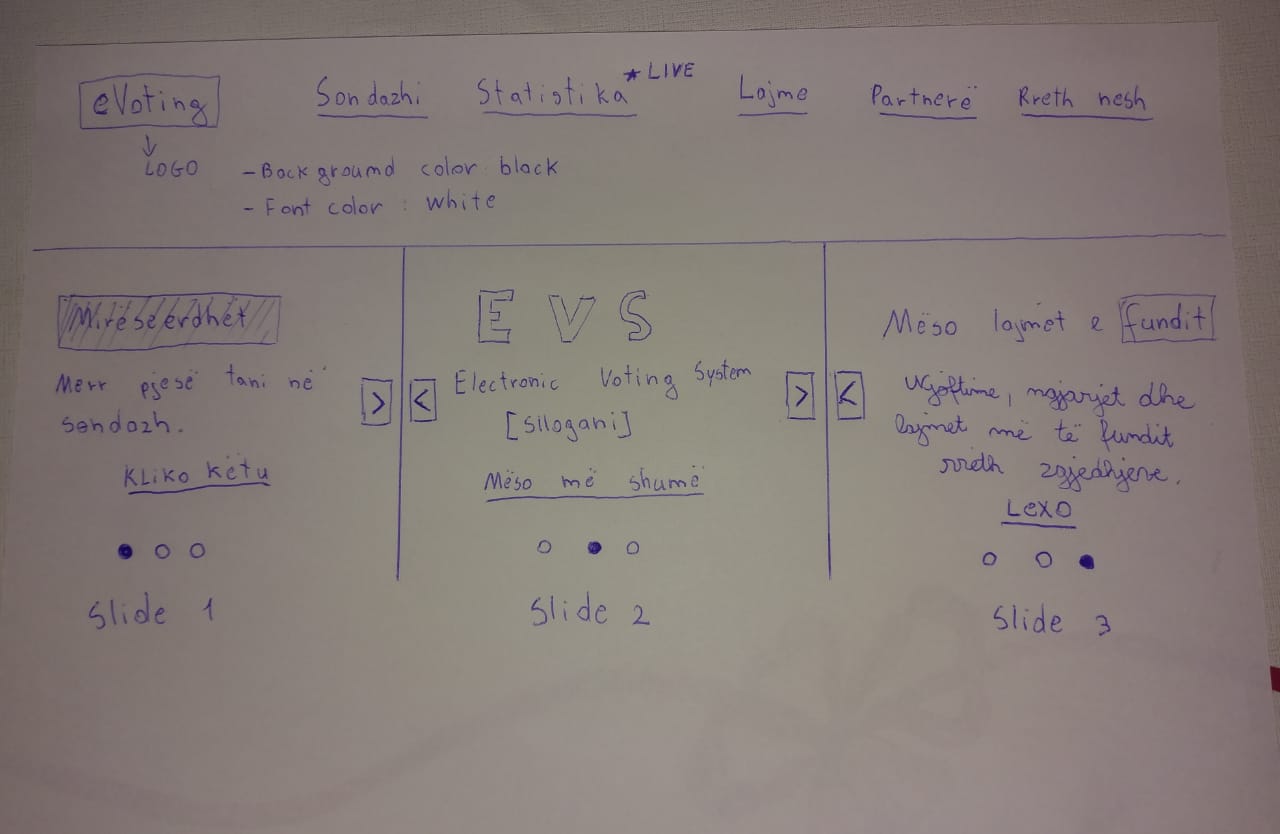 eVoting Sondazhi Statistika *LIVE Lajme Partnerë Rreth nesh
↓
LOGO
- Background color black
- Font color : white
Mirëseerdhët
Merr pjesë tani në
sondazh.
Kliko këtu
>
Slide 1
<
E V S
Electronic Voting System
[Sllogani]
Mëso më shumë
>
Slide 2
<
Mëso lajmet e fundit
Njoftime, ngjarjet dhe
lajmet më të fundit
rreth zgjedhjeve.
Lexo
Slide 3